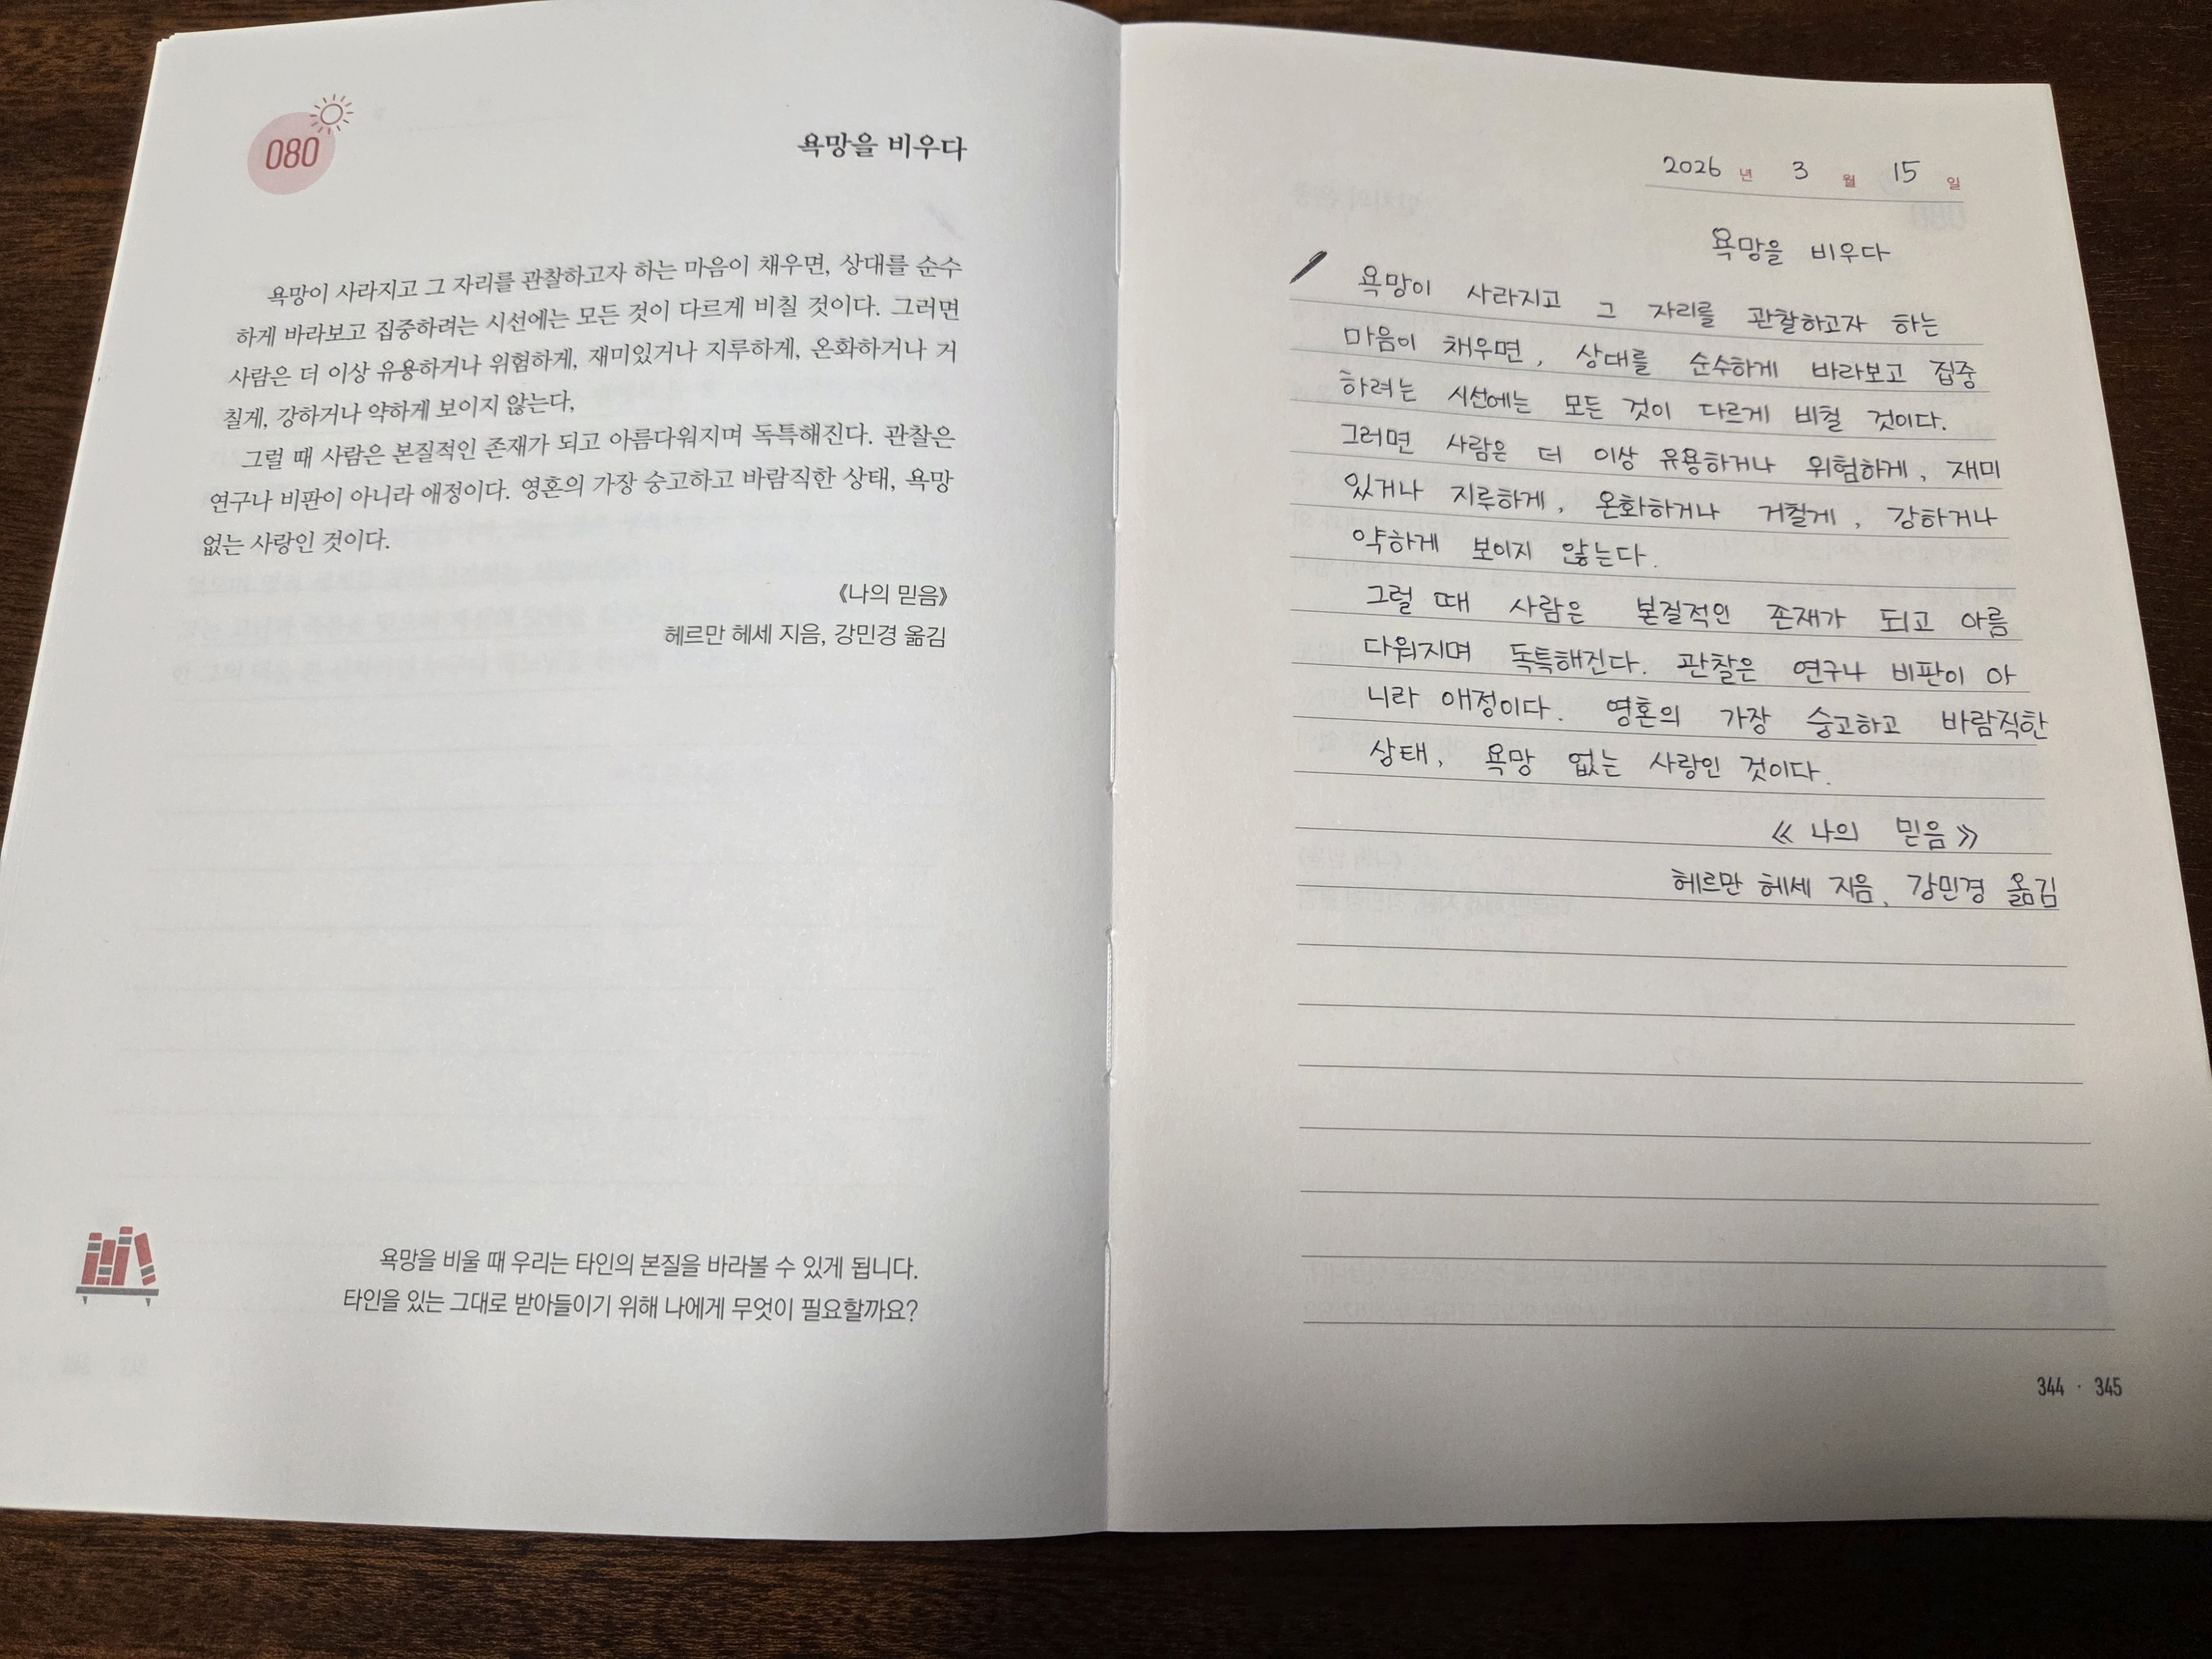 080
욕망을 비우다
욕망이 사라지고 그 자리를 관찰하고자 하는 마음이 채우면, 상대를 순수
하게 바라보고 집중하려는 시선에는 모든 것이 다르게 비칠 것이다. 그러면
사람은 더 이상 유용하거나 위험하게, 재미있거나 지루하게, 온화하거나 거
칠게, 강하거나 약하게 보이지 않는다,
그럴 때 사람은 본질적인 존재가 되고 아름다워지며 독특해진다. 관찰은
연구나 비판이 아니라 애정이다. 영혼의 가장 숭고하고 바람직한 상태, 욕망
없는 사랑인 것이다.
《나의 믿음》
헤르만 헤세 지음, 강민경 옮김
욕망을 비울 때 우리는 타인의 본질을 바라볼 수 있게 됩니다.
타인을 있는 그대로 받아들이기 위해 나에게 무엇이 필요할까요?
2026 년 3 월 15 일
욕망을 비우다
욕망이 사라지고 그 자리를 관찰하고자 하는
마음이 채우면, 상대를 순수하게 바라보고 집중
하려는 시선에는 모든 것이 다르게 비칠 것이다.
그러면 사람은 더 이상 유용하거나 위험하게, 재미
있거나 지루하게, 온화하거나 거칠게, 강하거나
약하게 보이지 않는다.
그럴 때 사람은 본질적인 존재가 되고 아름
다워지며 독특해진다. 관찰은 연구나 비판이 아
니라 애정이다. 영혼의 가장 숭고하고 바람직한
상태, 욕망 없는 사랑인 것이다.
《나의 믿음》
헤르만 헤세 지음, 강민경 옮김
344 · 345